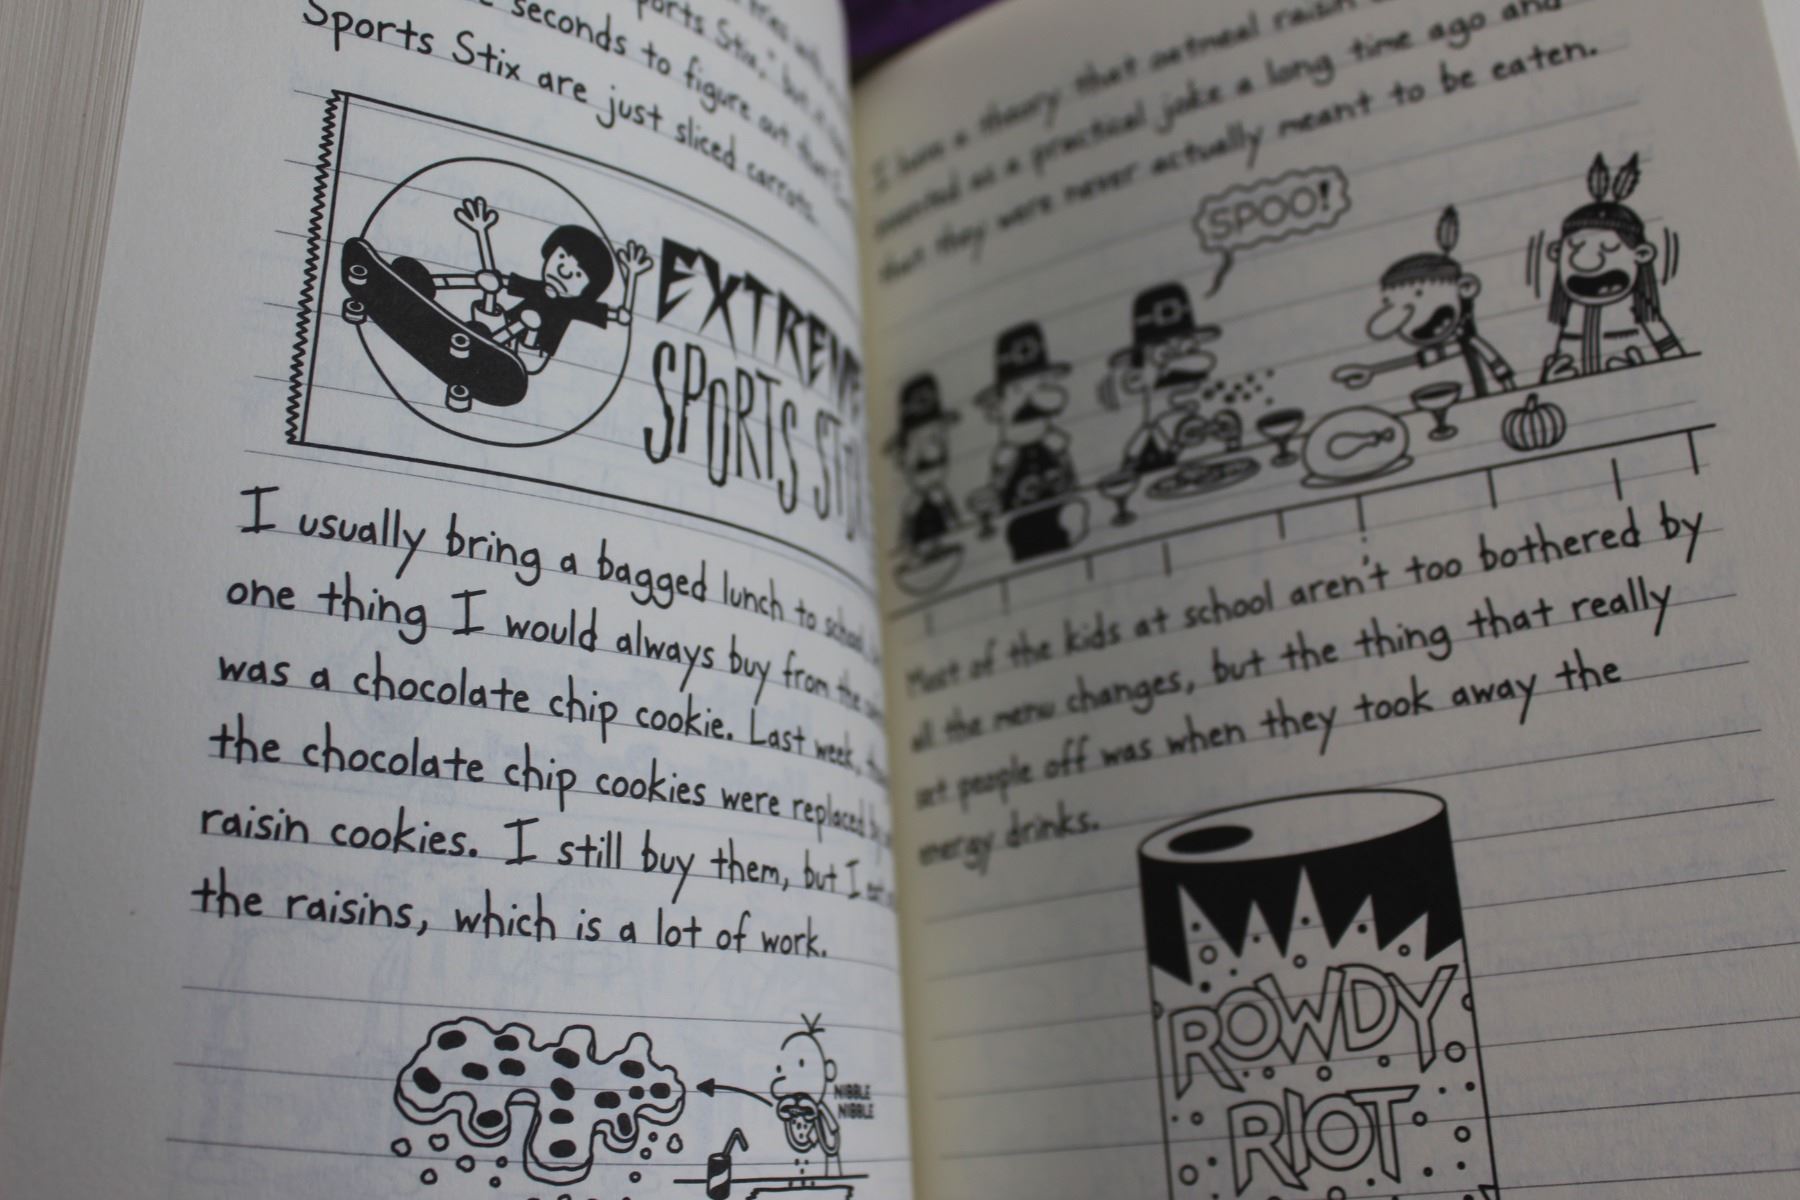 ports Stix," but
seconds to figure out that
Sports Stix are just sliced carrots.
EXTREME
SPORTS STIX
I usually bring a bagged lunch to school,
one thing I would always buy from the
was a chocolate chip cookie. Last week,
the chocolate chip cookies were replaced by
raisin cookies. I still buy them, but I eat
the raisins, which is a lot of work.
NIBBLE
NIBBLE
I have a theory that oatmeal raisin
invented as a practical joke a long time ago and
that they were never actually meant to be eaten.
SPOO!
Most of the kids at school aren't too bothered by
all the menu changes, but the thing that really
set people off was when they took away the
energy drinks.
ROWDY
RIOT